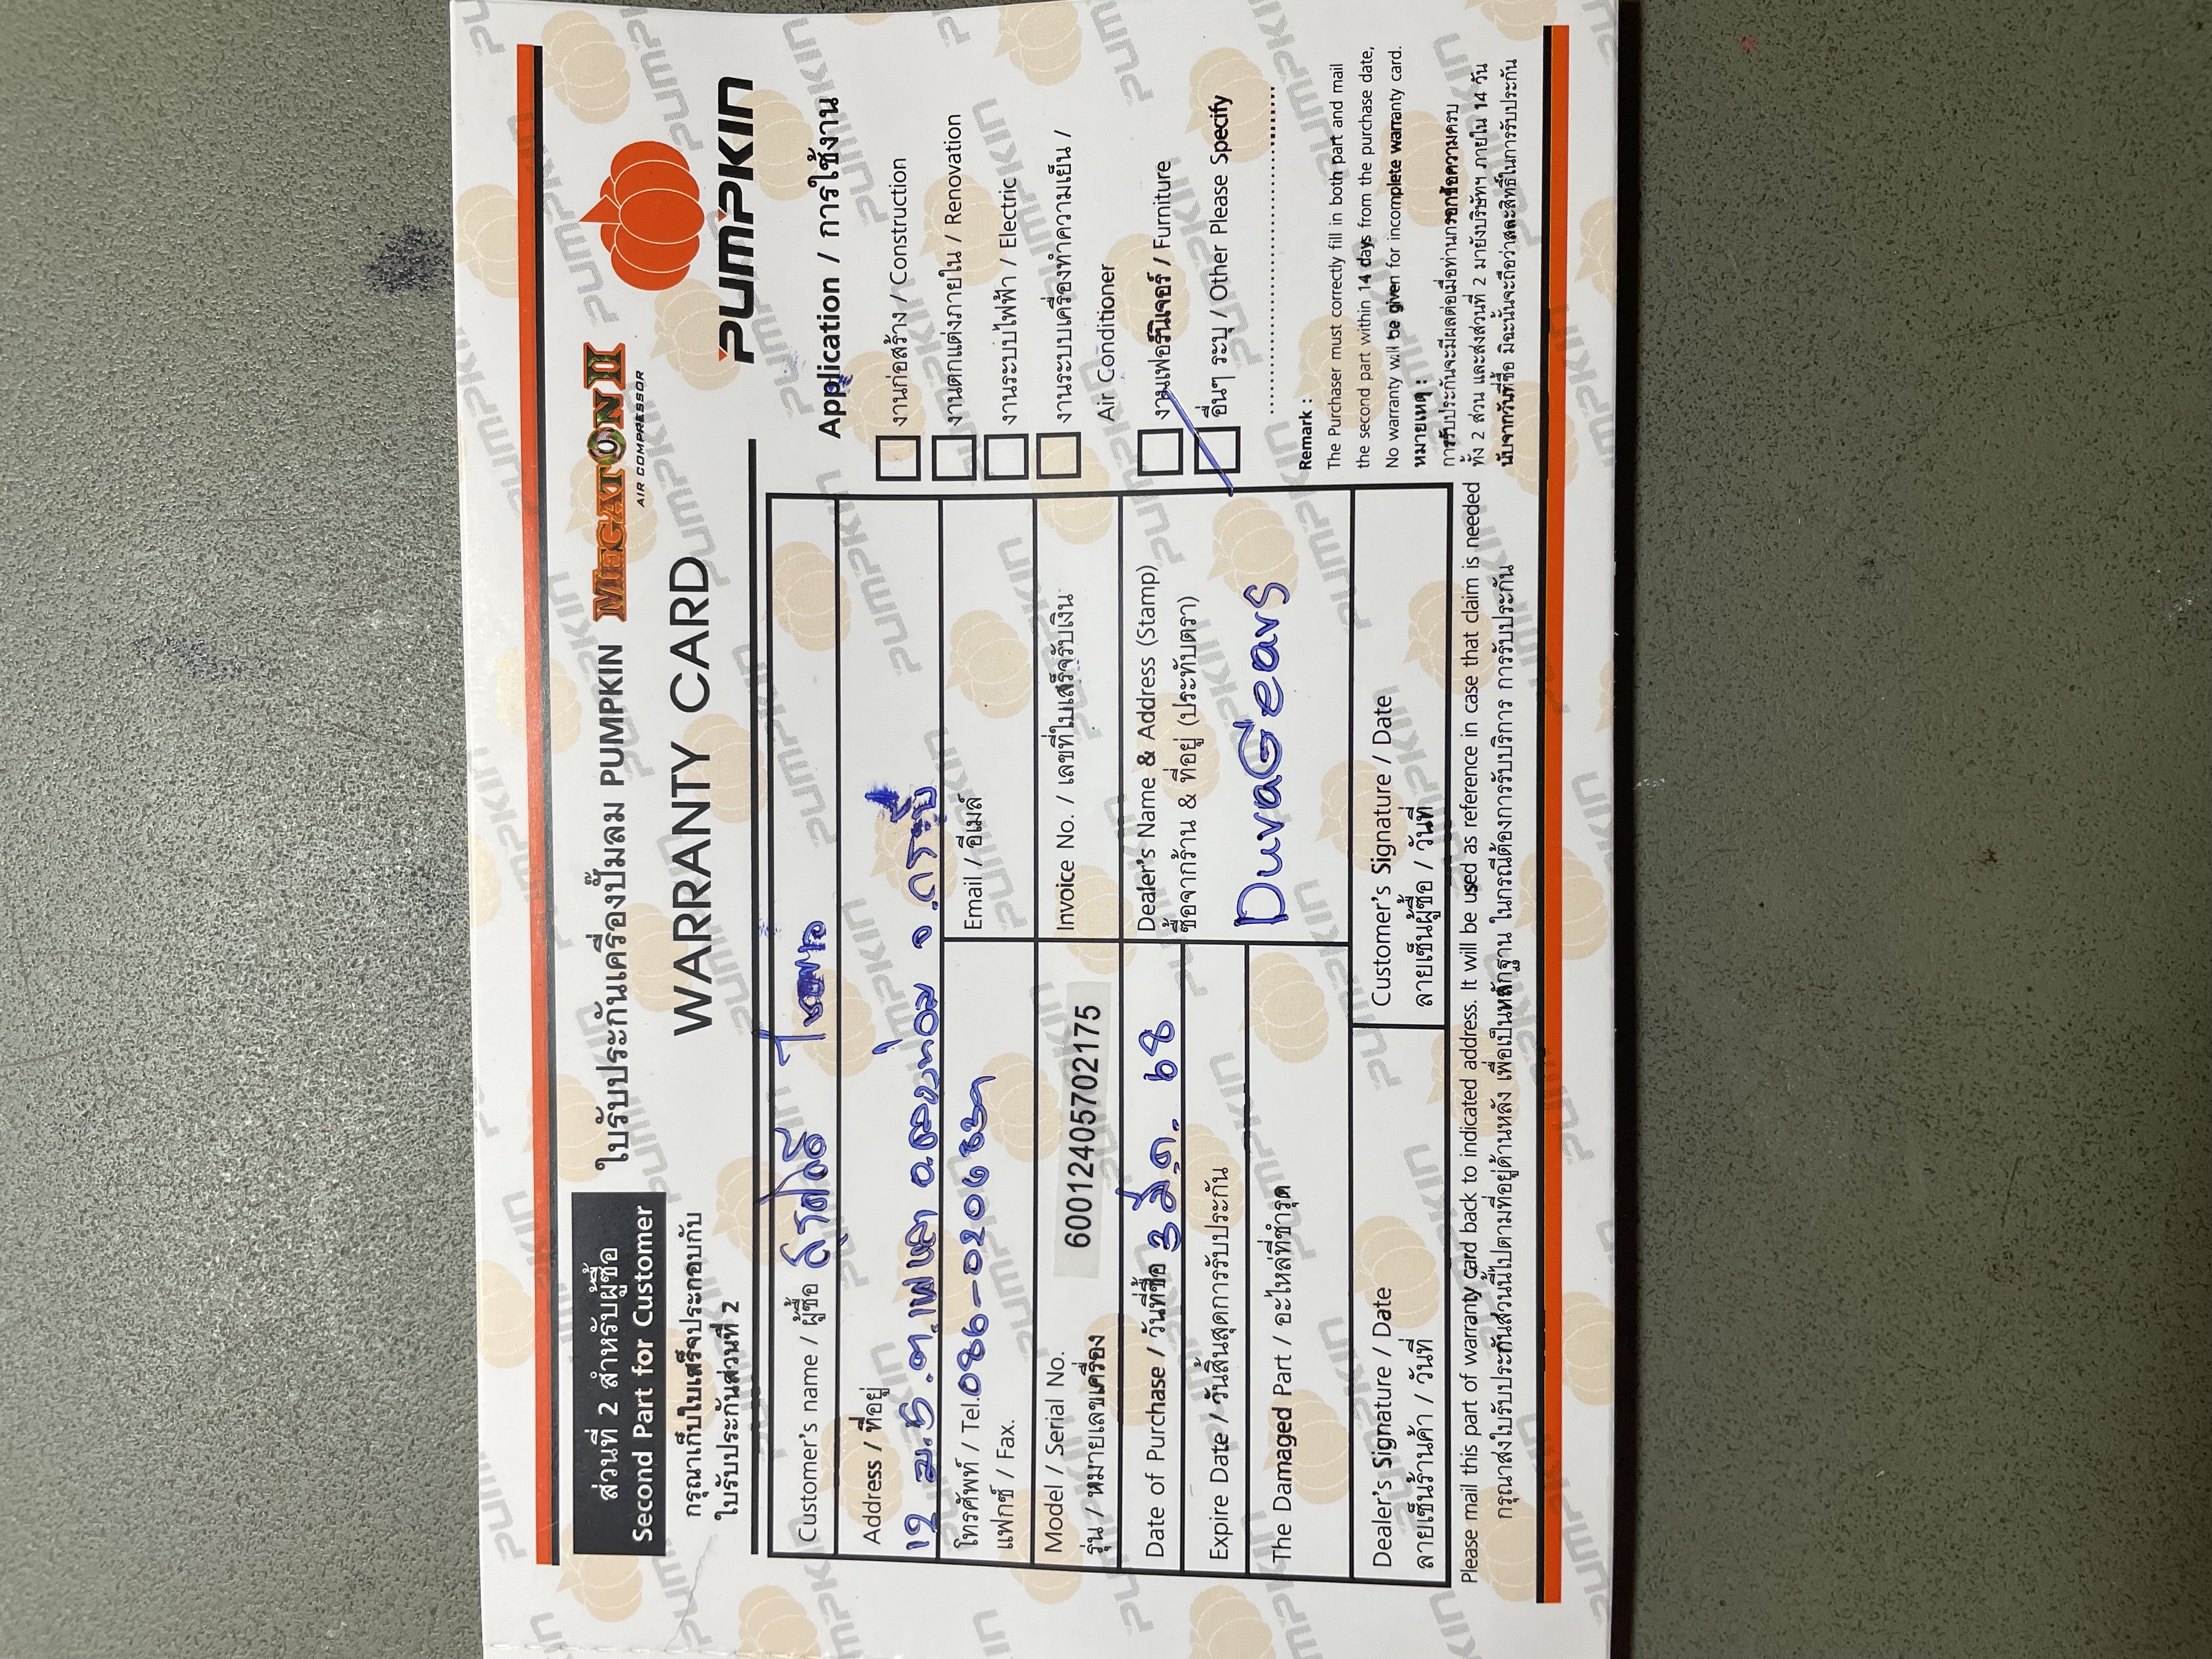 ส่วนที่ 2 สำหรับผู้ซื้อ
Second Part for Customer
กรุณาเก็บใบเสร็จประกอบกับ
ใบรับประกันส่วนที่ 2
ใบรับประกันเครื่องปั๊มลม PUMPKIN
MEGATON II
AIR COMPRESSOR
WARRANTY CARD
PUMPKIN
Customer's name / ผู้ซื้อ
Address / ที่อยู่
12 ม.5 .ต.เพหลา อ.คลองท่อม จ.กระบี่
โทรศัพท์ / Tel.
แฟกซ์ / Fax.
Email / อีเมล์
Model / Serial No.
รุ่น / หมายเลขเครื่อง
60012405702175
Invoice No. / เลขที่ใบเสร็จรับเงิน
Date of Purchase / วันที่ซื้อ 3 มี.ค. 68
Expire Date / วันสิ้นสุดการรับประกัน
The Damaged Part / อะไหล่ที่ชำรุด
Dealer's Name & Address (Stamp)
ซื้อจากร้าน & ที่อยู่ (ประทับตรา)
DuvaGears
Dealer's Signature / Date
ลายเซ็นร้านค้า / วันที่
Customer's Signature / Date
ลายเซ็นผู้ซื้อ / วันที่
Application / การใช้งาน
งานก่อสร้าง / Construction
งานตกแต่งภายใน / Renovation
งานระบบไฟฟ้า / Electric
งานระบบเครื่องทำความเย็น /
Air Conditioner
งานเฟอร์นิเจอร์ / Furniture
อื่นๆ ระบุ / Other Please Specify
Remark :
The Purchaser must correctly fill in both part and mail
the second part within 14 days from the purchase date,
No warranty will be given for incomplete warranty card.
หมายเหตุ :
การรับประกันจะมีผลต่อเมื่อท่านกรอกข้อความครบ
ทั้ง 2 ส่วน และส่งส่วนที่ 2 มายังบริษัทฯ ภายใน 14 วัน
นับจากวันที่ซื้อ มิฉะนั้นจะถือว่าสละสิทธิ์ในการรับประกัน
Please mail this part of warranty card back to indicated address. It will be used as reference in case that claim is needed
กรุณาส่งใบรับประกันส่วนนี้ไปตามที่อยู่ด้านหลัง เพื่อเป็นหลักฐาน ในกรณีต้องการรับบริการ การรับประกัน